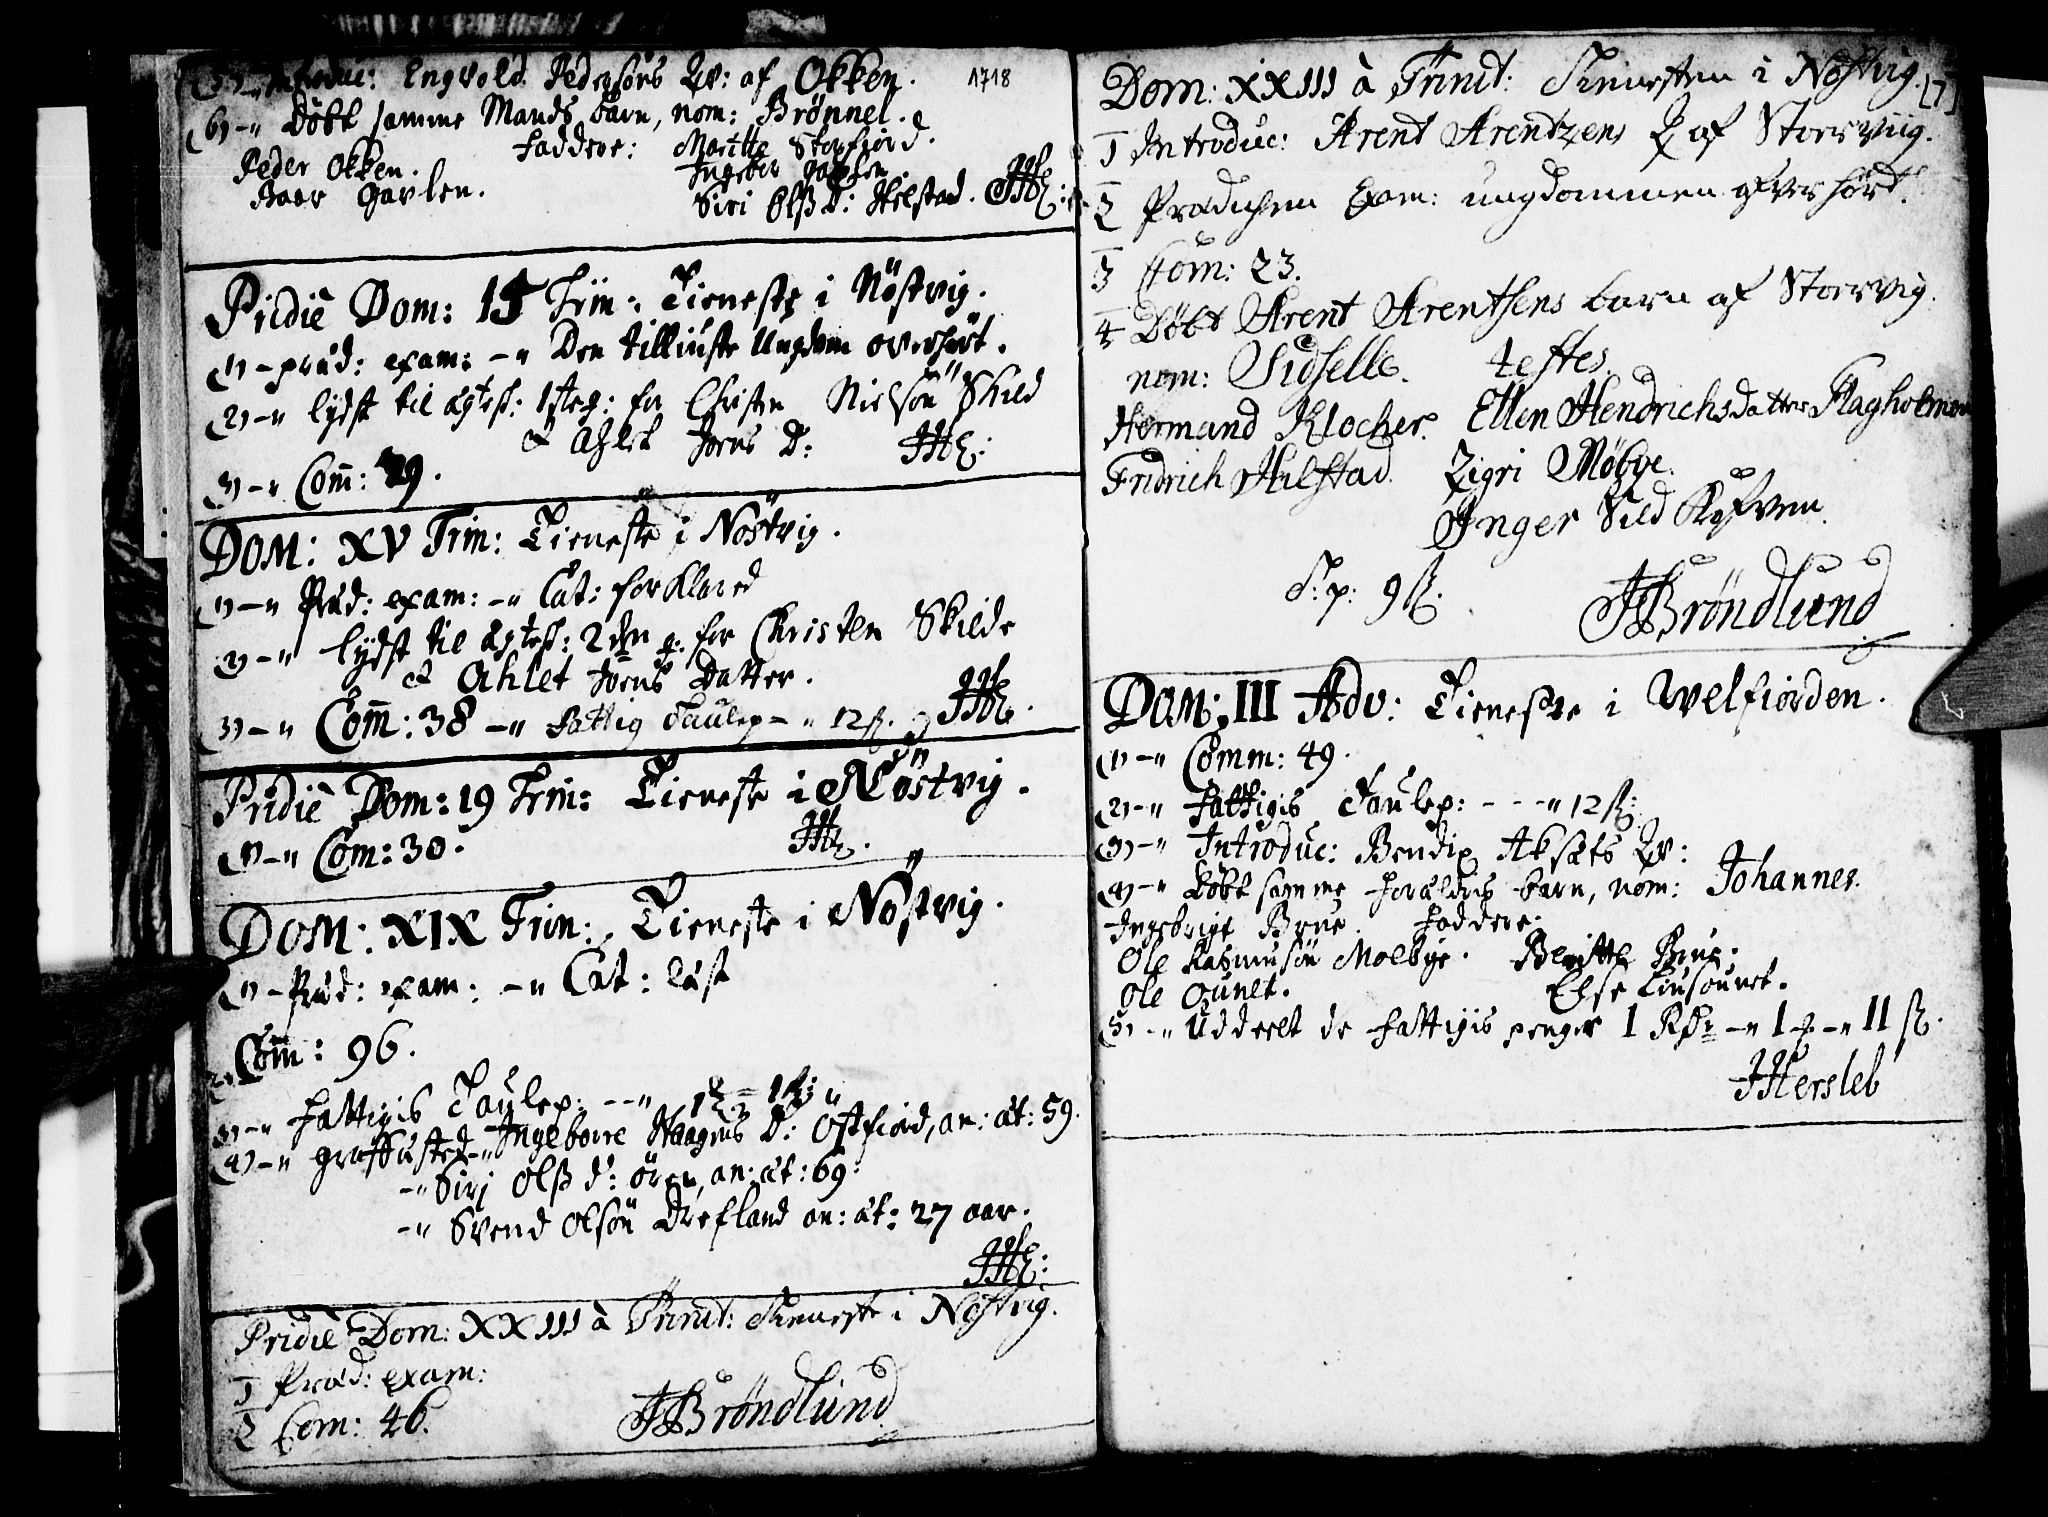 5) -" Introduc: Engvold Pedersøns Qv: af Okken. 1718
6) -" Døbt samme Mands barn, nom: Brønnel.
Faddere: Maritte Storfiord.
Peder Okken. Ingebor
Iver Gavlen. Siri Olß D: Helstad. JHL:
Pridie Dom: 15 Trin: Tieneste i Nöstvig.
1) - præd: exam: -" Den tilliuste Ungdom overhørt.
2) -" lydst til ægtesk: 1ste g: for Christen Nielsøn Skild
& Ahlet Joens D: JHL:
3) -" Com̄: 29.
DOM: XV Trin: Tieneste i Nöstvig.
1) -" Præd: exam: -" Cat: forklared
2) -" lydst til ægtesk: 2den g. for Christen Skilde
& Ahlet Joens Datter.
3) -" Com̄: 38 -" fattig Taulep - " 12 ß. JHL.
Pridie Dom: 19 Trin: Tieneste i Nöstvig.
1) -" Com: 30. JHL.
DOM: XIX Trin: Tieneste i Nöstvig.
1) - Præd: exam: -" Cat: læst
2) Com̄: 96.
3) -" fattigis Taulep: - -" 1
4) -" graffæsted -" Ingeborre Haagens D: Östfiord, an: æt: 59.
-" Siri Olß d: ören, an: æt: 69.
-" Svend Olsøn Drefland an: æt: 27 aar.
JHL:
Pridie Dom: XXIII à Trinit: Tieneste i Nøstvig.
1 Præd: exam:
2 Com: 46. JBröndlund
Dom: XXIII à Trinit: Tienesten i Nøstvig. [7]
1 Introduc: Arent Arentzens Q af Storviig.
2 Prædichen Exam: ungdommen ofverhørt.
3 Com: 23.
4 Døbt Arent Arentsens barn af Storvig.
nom: Sidselle. testes.
Hermand Klocher. Ellen Hendrichsdatter Flagholmen
Fridrich Hilstad. Zigri Möbye.
Inger Sild
T: p: 9 ß. JBröndlund
DOM: III Adv: Tieneste i Welfiorden.
1) -" Comm: 49.
2) -" fattigis Taulep: - - -" 12 ß:
3) -" Introduc: Bendix Aksets Qv:
4) -" Døbt samme forældris barn, nom: Johannes.
Ingebrigt Brue. Faddere:
Ole Rasmusøn Moebye. Beritte Brue.
Ole Ounet. Else
5) -" Uddeelt de fattigis penger 1 Rdr -" 1 -" 11 ß.
JHersleb